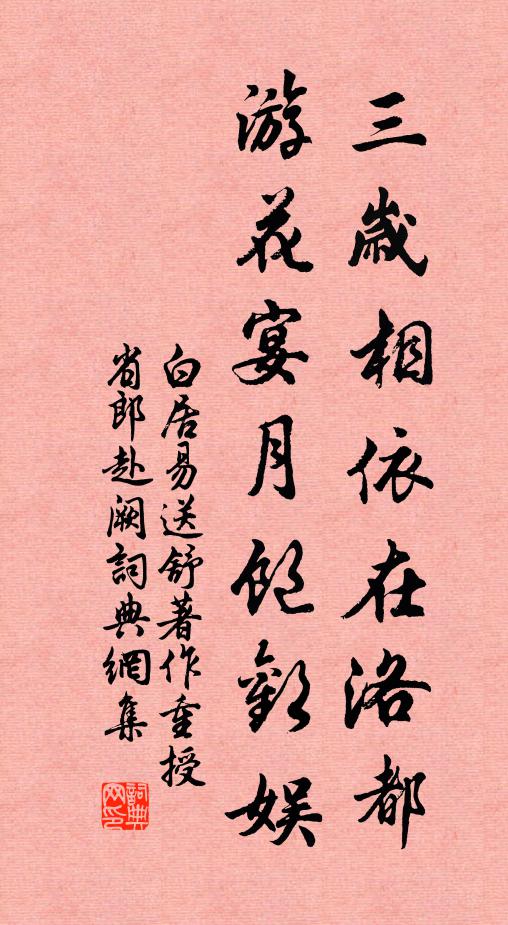 三歲相依在洛都
游花宴月飽歡娛
白居易送舒著作重授
省郎赴阙詞典網集
詞典網印